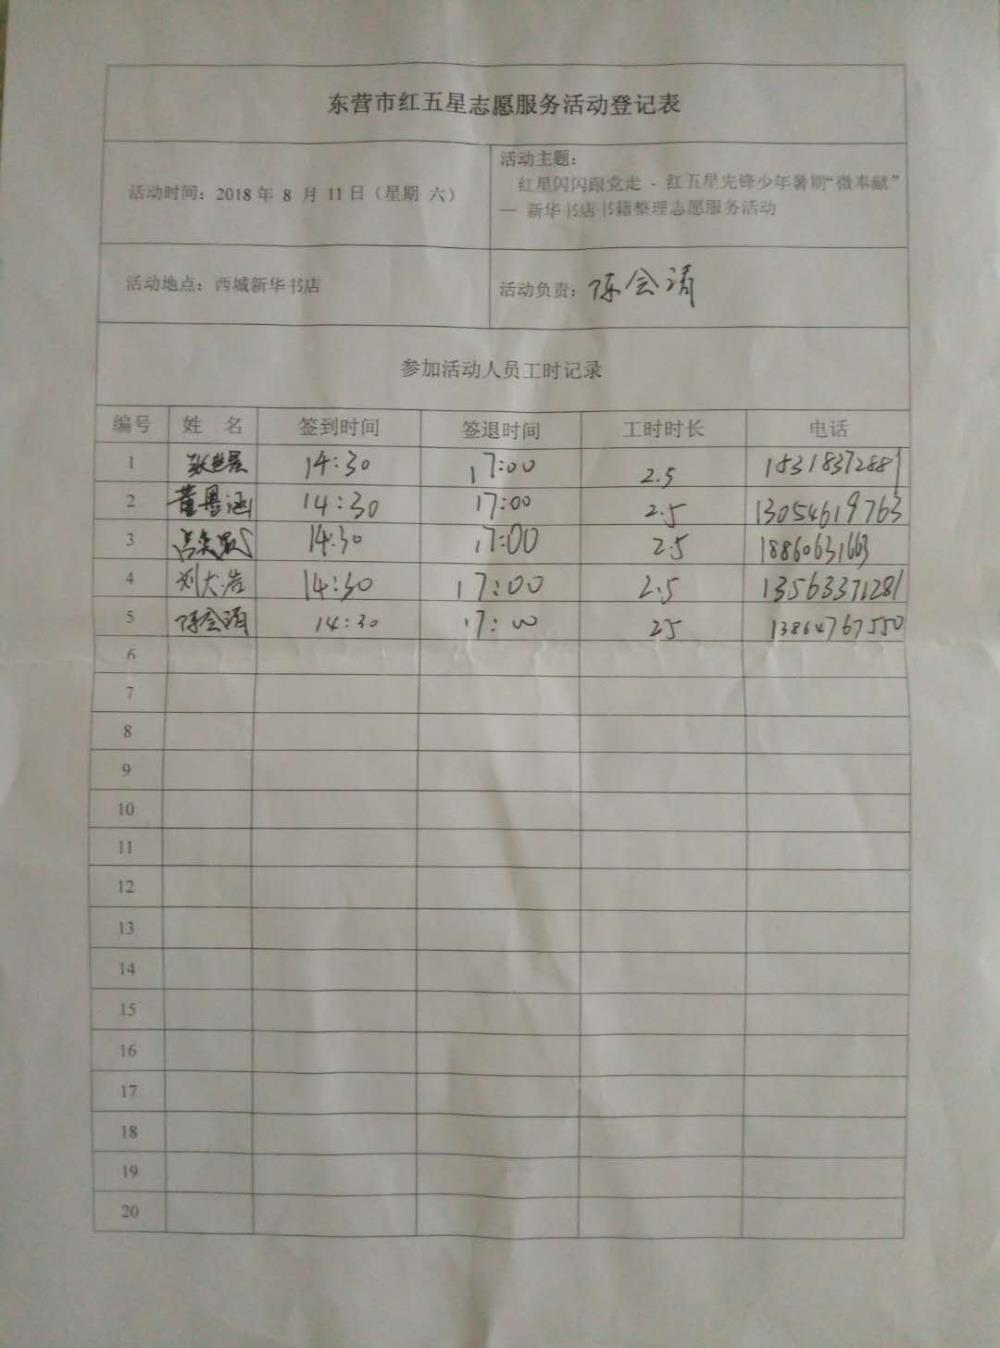 东营市红五星志愿服务活动登记表
活动时间：2018 年 8 月 11 日（星期 六）
活动主题：
红星闪闪跟党走 - 红五星先锋少年暑期“微奉献”
— 新华书店书籍整理志愿服务活动
活动地点：西城新华书店
活动负责：陈会清
参加活动人员工时记录
编号 姓 名 签到时间 签退时间 工时时长 电话
1 14:30 17:00 2.5 18318372881
2 14:30 17:00 2.5 13054619763
3 14:30 17:00 2.5 18860631663
4 刘大浩 14:30 17:00 2.5 13563371281
5 陈会清 14:30 17:00 25 13864767550
6
7
8
9
10
11
12
13
14
15
16
17
18
19
20